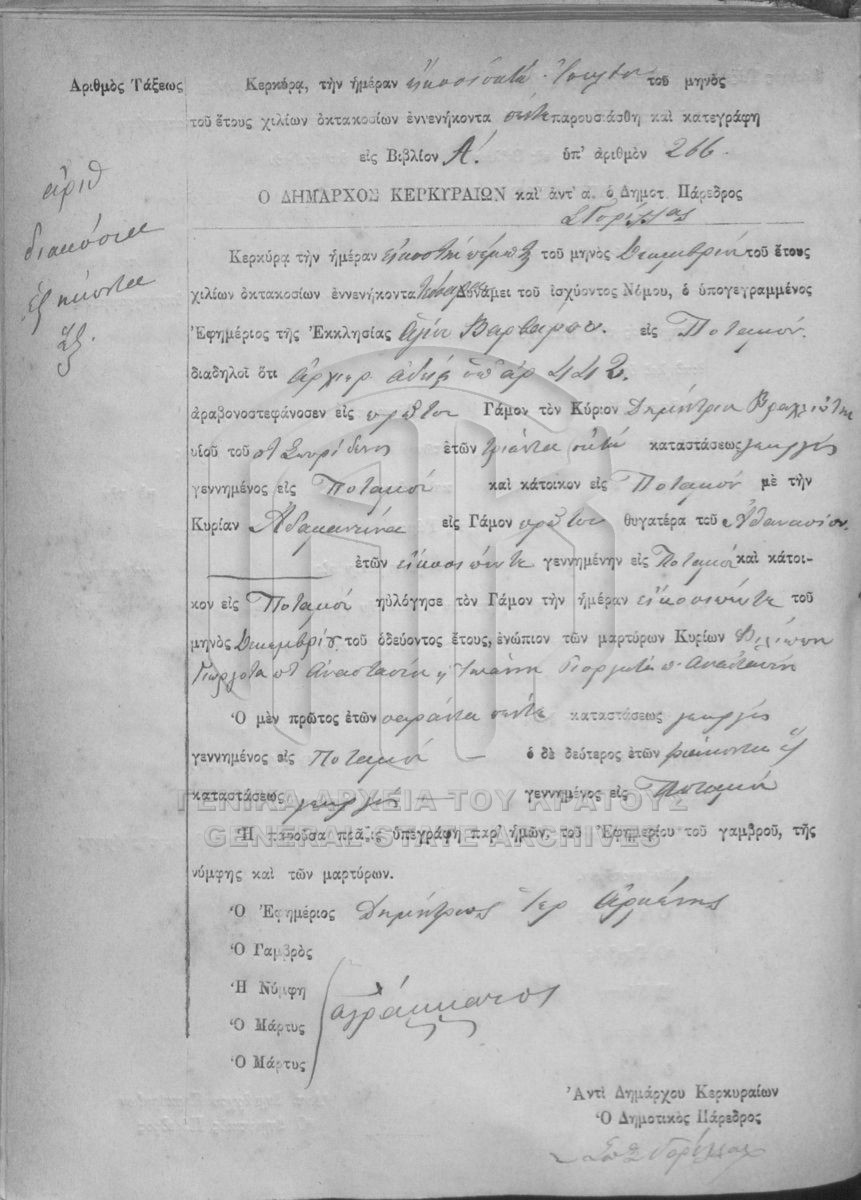 Ἀριθμὸς Τάξεως
ἀριθ
διακόσια
ἑξήκοντα
ἕξ.
Κερκύρα, τὴν ἡμέραν εἴκοσι ὀκτὼ Ἰουλίου τοῦ μηνὸς
τοῦ ἔτους χιλίων ὀκτακοσίων ἐννενήκοντα πέντε παρουσιάσθη καὶ κατεγράφη
εἰς Βιβλίον Α΄. ὑπ' ἀριθμὸν 266.
Ὁ ΔΗΜΑΡΧΟΣ ΚΕΡΚΥΡΑΙΩΝ καὶ ἀντ' α. ὁ Δημοτ. Πάρεδρος
Κερκύρᾳ τὴν ἡμέραν εἰκοστὴν πέμπτην τοῦ μηνὸς Δεκεμβρίου τοῦ ἔτους
χιλίων ὀκτακοσίων ἐννενήκοντα Δυνάμει τοῦ ἰσχύοντος Νόμου, ὁ ὑπογεγραμμένος
Ἐφημέριος τῆς Ἐκκλησίας Ἁγίας Βαρβάρας εἰς Ποταμόν.
διαδηλοῖ ὅτι Ἀρχιερ. ἀδείᾳ ὑπ' ἀρ 442.
ἀραβονοστεφάνοσεν εἰς πρῶτον Γάμον τὸν Κύριον Δημήτριον
υἱοῦ τοῦ ποτ Σπυρίδωνος ἐτῶν τριάντα ὀκτὼ καταστάσεως γεωργὸς
γεννημένος εἰς Ποταμὸν καὶ κάτοικον εἰς Ποταμὸν μὲ τὴν
Κυρίαν Ἀδαμαντίνα εἰς Γάμον πρῶτον θυγατέρα τοῦ Ἀθανασίου
ἐτῶν εἴκοσι πέντε γεννημένην εἰς Ποταμὸν καὶ κάτοι-
κον εἰς Ποταμὸν ηὐλόγησε τὸν Γάμον τὴν ἡμέραν εἴκοσι πέντε τοῦ
μηνὸς Δεκεμβρίου τοῦ ὁδεύοντος ἔτους, ἐνώπιον τῶν μαρτύρων Κυρίων Φιλίππου
Γιωργότα ποτ Ἀναστασίου κ Ἰωάννη Γιοργοτα π. Ἀναστασίου
Ὁ μὲν πρῶτος ἐτῶν σαράντα πέντε καταστάσεως γεωργὸς
γεννημένος εἰς Ποταμὸν — ὁ δὲ δεύτερος ἐτῶν τριάκοντα ἓξ
καταστάσεως γεωργὸς — γεννημένος εἰς Ποταμὸν
ΓΕΝΙΚΑ ΑΡΧΕΙΑ ΤΟΥ ΚΡΑΤΟΥΣ
GENERAL STATE ARCHIVES
Ἡ παροῦσα πρᾶξις ὑπεγράφη παρ' ἡμῶν, τοῦ Ἐφημερίου τοῦ γαμβροῦ, τῆς
νύμφης καὶ τῶν μαρτύρων.
Ὁ Ἐφημέριος Δημήτριος Ἱερ
Ὁ Γαμβρὸς
Ἡ Νύμφη
ἀγράμματος
Ὁ Μάρτυς
Ὁ Μάρτυς
Ἀντὶ Δημάρχου Κερκυραίων
Ὁ Δημοτικὸς Πάρεδρος